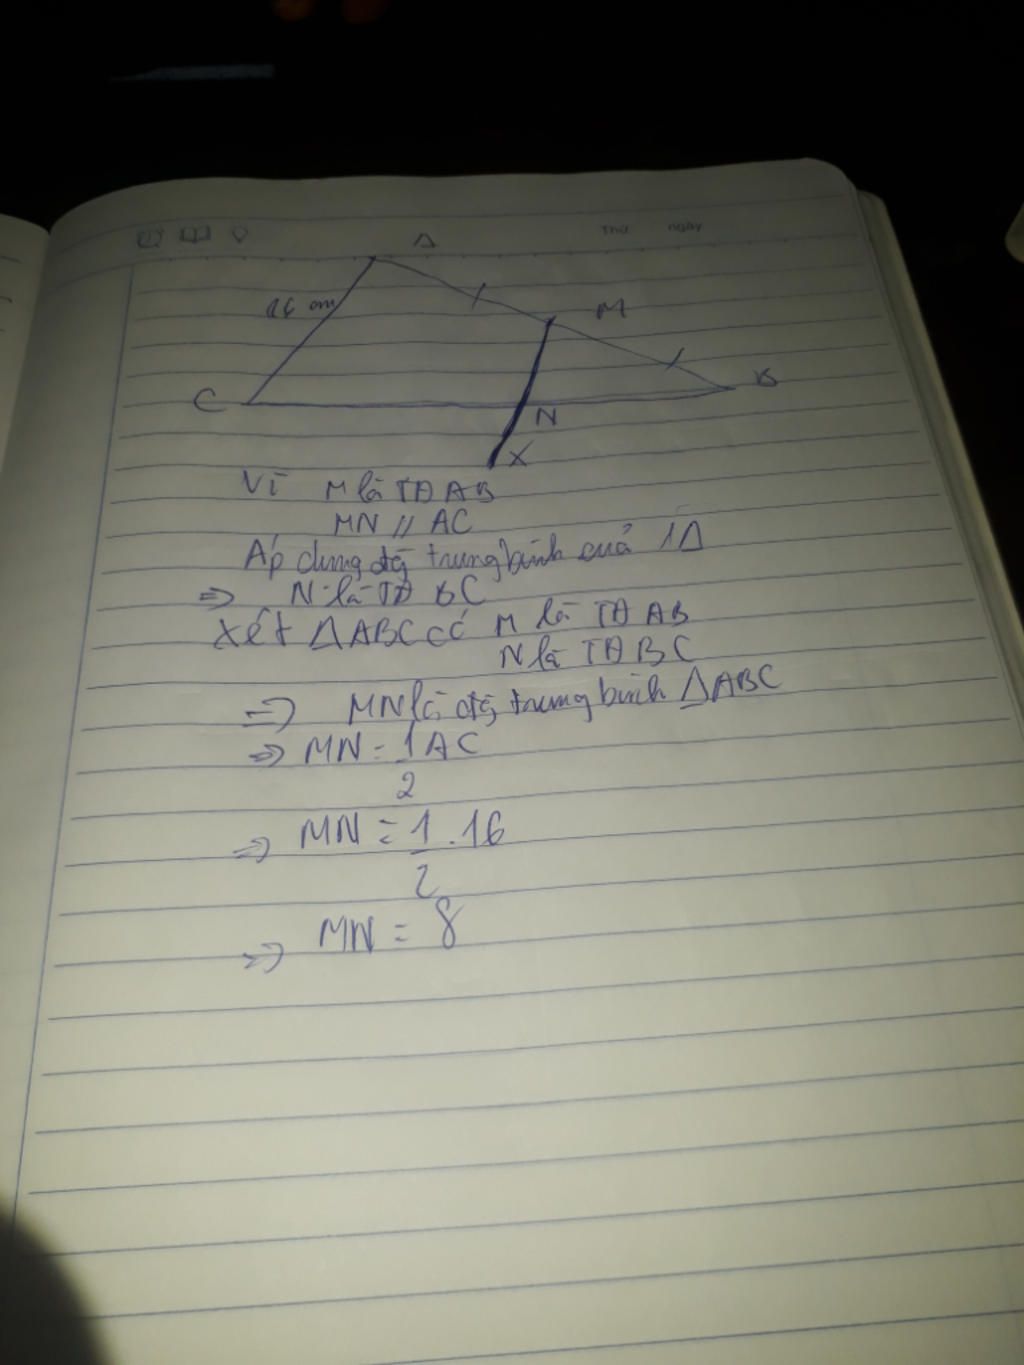 Thứ ngày
A
16 cm
M
C
B
N
X
Vì M là TĐ AB
MN // AC
Áp dụng đg trung bình của 1 Δ
=> N là TĐ BC
Xét ΔABC có M là TĐ AB
N là TĐ BC
=> MN là đg trung bình ΔABC
=> MN = 1 AC
2
=> MN = 1 . 16
2
=> MN = 8